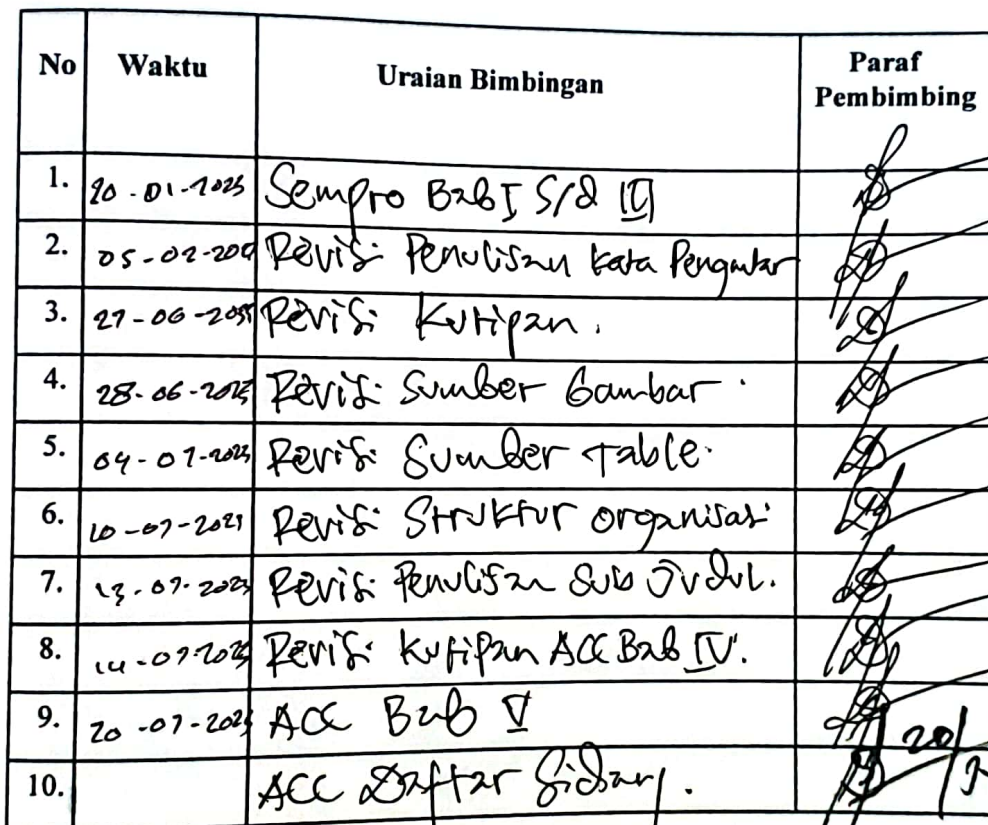 No Waktu Uraian Bimbingan Paraf Pembimbing
1. 20-01-2025 Sempro Bab I S/d III
2. 05-02-202 Revisi Penulisan Kata Pengantar
3. 27-06-2025 Revisi Kutipan.
4. 28-06-2025 Revisi Sumber Gambar.
5. 04-07-2025 Revisi Sumber Table.
6. 10-07-2025 Revisi Struktur organisasi
7. 13-07-2025 Revisi Penulisan Sub Judul.
8. 14-07-2025 Revisi Kutipan ACC Bab IV.
9. 20-07-2025 ACC Bab V
10. ACC Daftar Sidang. 20/